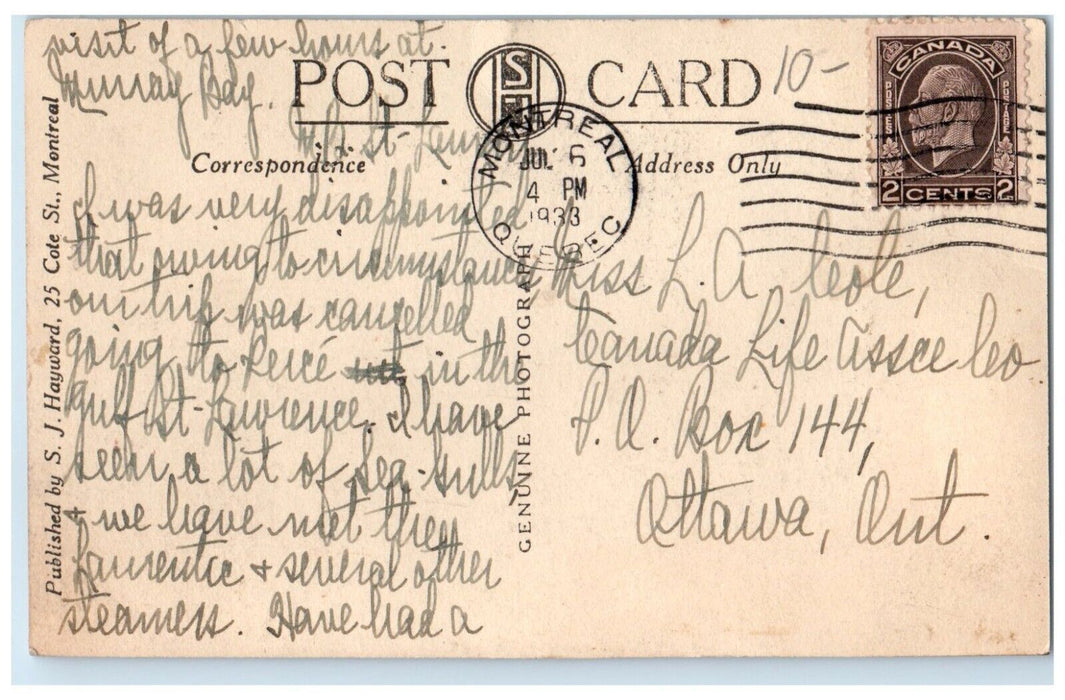 visit of a few hours at
Murray Bay.
POST CARD
10-
CANADA
POSTES
POSTAGE
2 CENTS 2
MONTREAL
JUL 6
4 PM
1933
QUEBEC
St-Lawrence
Correspondence
Address Only
I was very disappointed
that owing to circumstances
our trip was cancelled
going to Percé in the
gulf St-Lawrence. I have
seen a lot of sea-gulls
+ we have met the
Laurentic + several other
steamers. Have had a
Miss L. A. Cole,
Canada Life Assce Co.
P.O. Box 144,
Ottawa, Ont.
Published by S. J. Hayward, 25 Cote St., Montreal
GENUINE PHOTOGRAPH